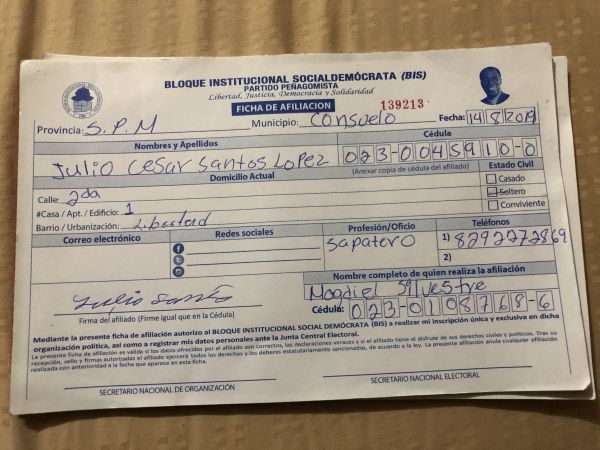 BLOQUE INSTITUCIONAL SOCIALDEMÓCRATA (BIS)
PARTIDO PEÑAGOMISTA
Libertad, Justicia, Democracia y Solidaridad
FICHA DE AFILIACION 139213
Provincia: S.P.M Municipio: Consuelo Fecha: 14/8/2019
Nombres y Apellidos Cédula
Julio Cesar Santos Lopez 023-0045910-0
Domicilio Actual (Anexar copia de cédula del afiliado) Estado Civil
Casado
Calle: 2da Soltero
#Casa / Apt. / Edificio: 1 Conviviente
Barrio / Urbanización: Libertad
Correo electrónico Redes sociales Profesión/Oficio Teléfonos
Sapatero 1) 8292272869
2)
Nombre completo de quien realiza la afiliación
Julio Santos Magdiel Silvestre
Firma del afiliado (Firme igual que en la Cédula) Cédula: 023-0108768-6
Mediante la presente ficha de afiliación autorizo al BLOQUE INSTITUCIONAL SOCIAL DEMÓCRATA (BIS) a realizar mi inscripción única y exclusiva en dicha
organización política, así como a registrar mis datos personales ante la Junta Central Electoral.
La presente ficha de afiliación es valida si los datos ofrecidos por el afiliado son correctos, las declaraciones veraces y si el afiliado tiene el disfrute de sus derechos civiles y políticos. Tras su
recepción, sello y firmas autorizadas el afiliado ejercerá todos los derechos y los deberes estatutariamente sancionados, de acuerdo a la ley. La presente afiliación anula cualquier afiliación
realizada con anterioridad a la fecha que aparece en esta ficha.
SECRETARIO NACIONAL DE ORGANIZACIÓN SECRETARIO NACIONAL ELECTORAL